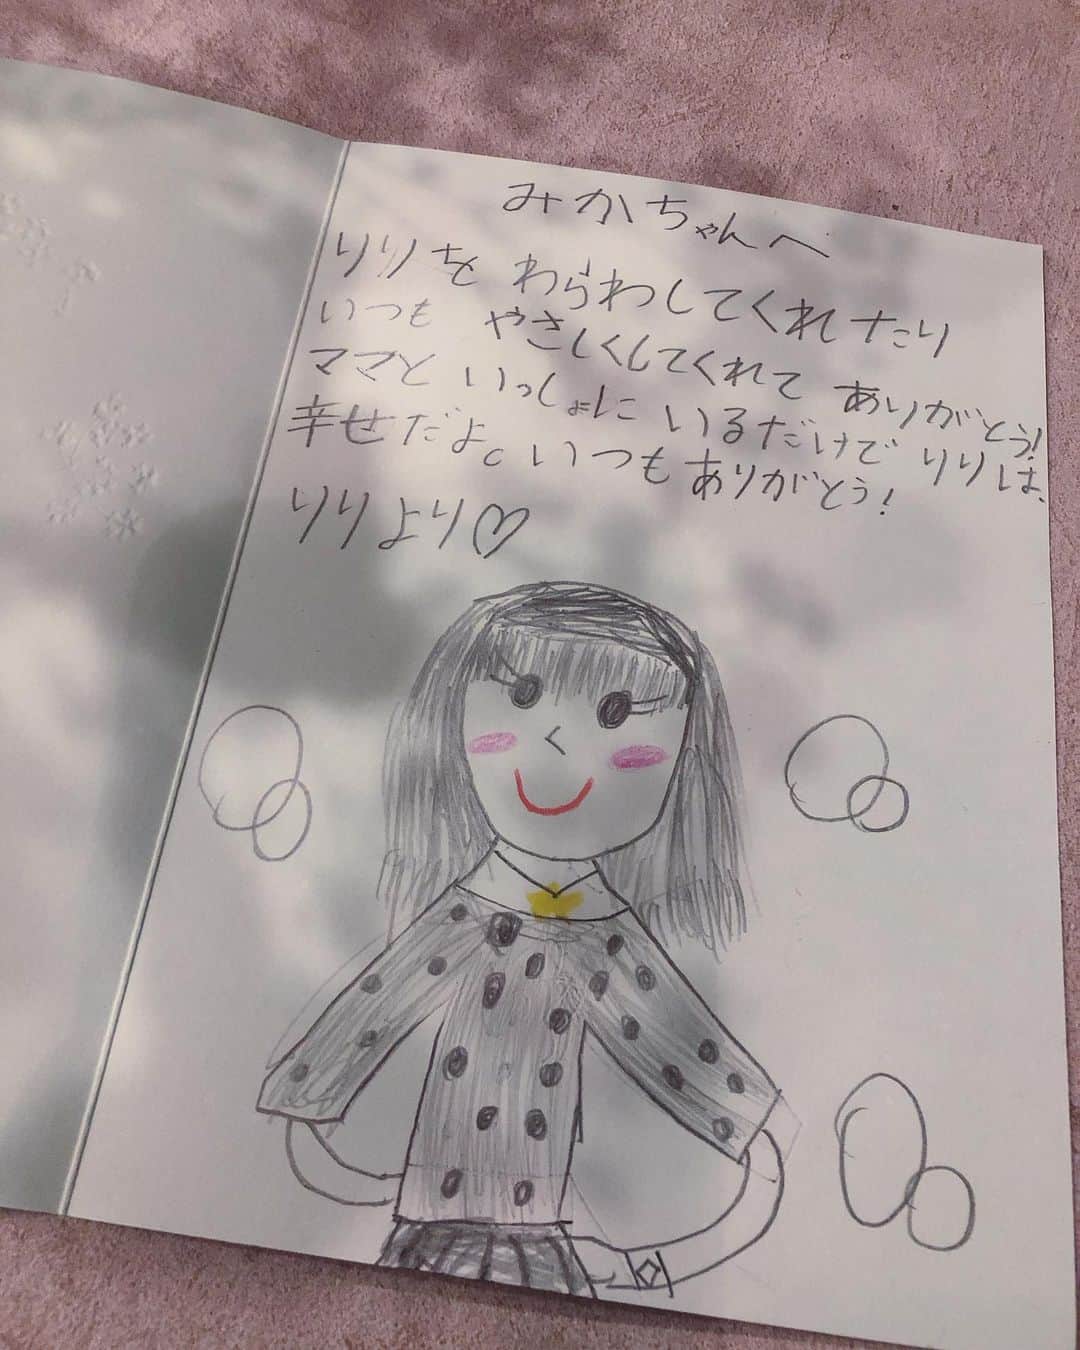 みかちゃんへ
りりを わらわしてくれたり
いつも やさしくしてくれて ありがとう!
ママと いっしょに いるだけで りりは、
幸せだよ。いつもありがとう!
りりより♡